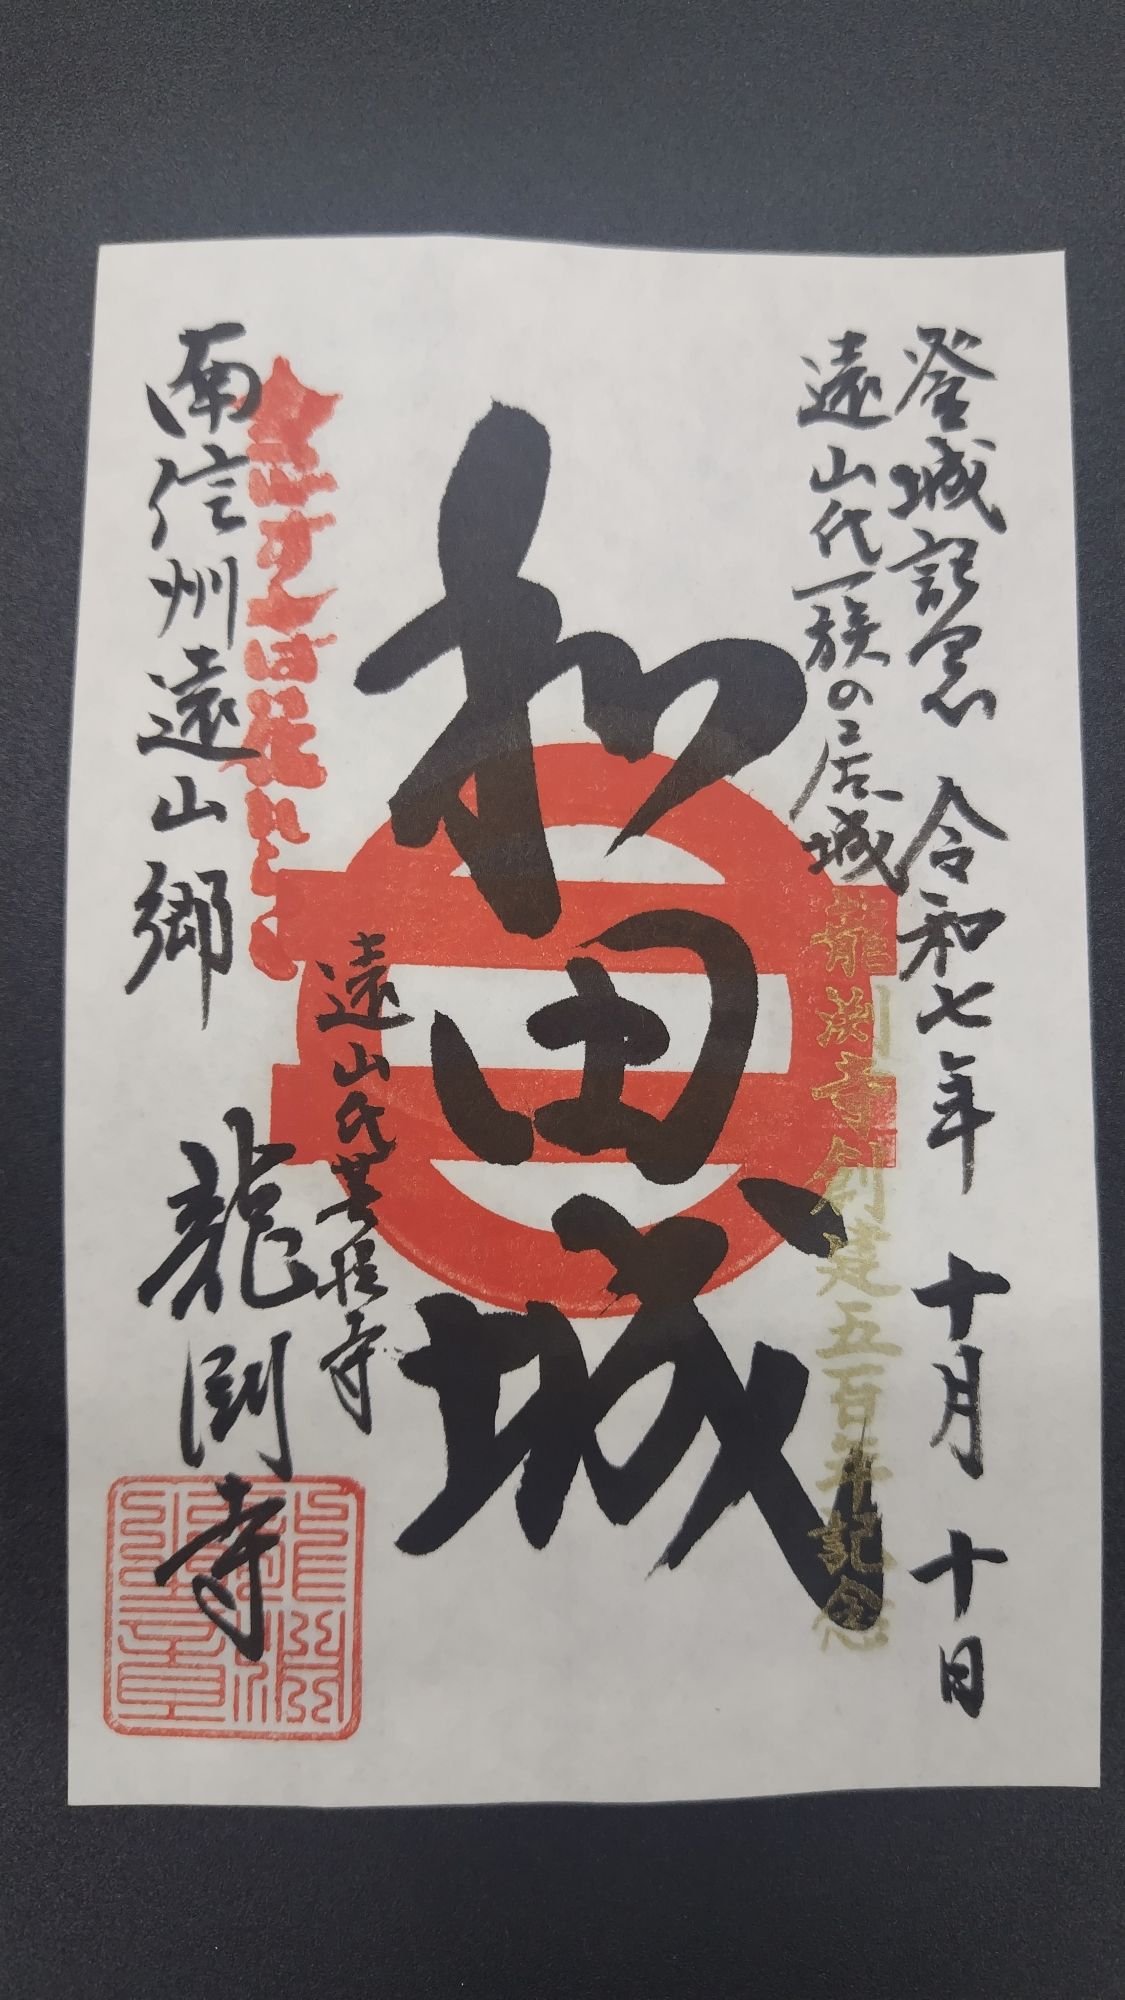 登城記念 令和七年 十月 十日
遠山氏一族の居城
龍渕寺創建五百年記念
和田城
遠山氏菩提寺
南信州遠山郷 龍渕寺